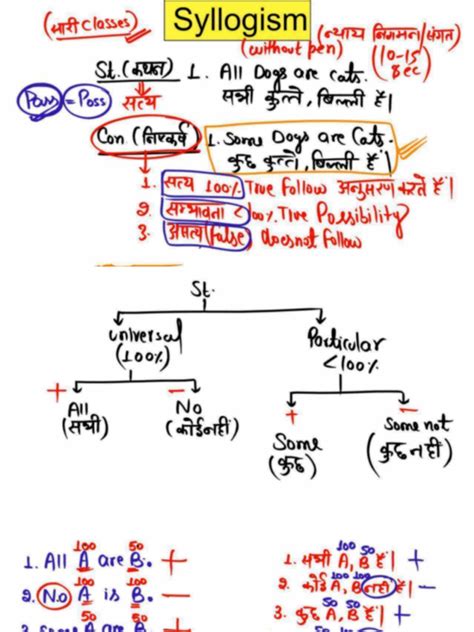 Syllogism
(भारी Classes)
(न्याय निगमन/संगत)
(without pen)
(10-15 Sec)
St. (कथन) 1. All Dogs are Cats.
सभी कुत्ते, बिल्ली हैं|
Poss = Poss
सत्य
Con. (निष्कर्ष) 1. Some Dogs are Cats.
कुछ कुत्ते, बिल्ली हैं|
1. सत्य 100% True Follow अनुसरण करते हैं|
2. सम्भावना <100% True Possibility
3. असत्य (False) does not Follow
St.
Universal
(100%)
Particular
<100%
+ −
All No
(सभी) (कोई नहीं)
+ −
Some Some not
(कुछ) (कुछ नहीं)
100 50
1. All A are B. +
100 100
2. No A is B. −
50 50
3. Some A are B
100 50
1. सभी A, B हैं| +
100 100
2. कोई A, B नहीं है| −
50 50
3. कुछ A, B हैं| +